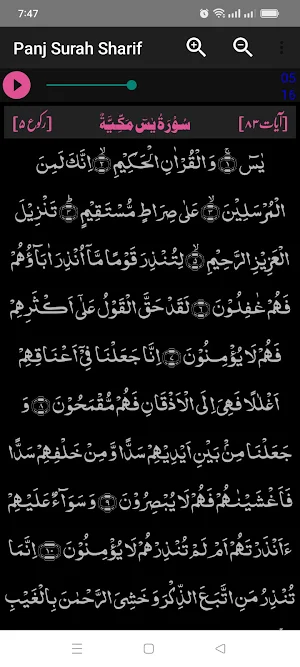 7:47
Panj Surah Sharif
05
16
[آیات ۸۳] سُوْرَةُ يٰسٓ مَكِّيَّةٌ [رکوع ۵]
يٰسٓ ۝۱ وَالْقُرْاٰنِ الْحَكِيْمِ ۝۲ اِنَّكَ لَمِنَ
الْمُرْسَلِيْنَ ۝۳ عَلٰى صِرَاطٍ مُّسْتَقِيْمٍ ۝۴ تَنْزِيْلَ
الْعَزِيْزِ الرَّحِيْمِ ۝۵ لِتُنْذِرَ قَوْمًا مَّاۤ اُنْذِرَ اٰبَآؤُهُمْ
فَهُمْ غٰفِلُوْنَ ۝۶ لَقَدْ حَقَّ الْقَوْلُ عَلٰۤى اَكْثَرِهِمْ
فَهُمْ لَا يُؤْمِنُوْنَ ۝۷ اِنَّا جَعَلْنَا فِيْۤ اَعْنَاقِهِمْ
اَغْلٰلًا فَهِيَ اِلَى الْاَذْقَانِ فَهُمْ مُّقْمَحُوْنَ ۝۸ وَ
جَعَلْنَا مِنْۢ بَيْنِ اَيْدِيْهِمْ سَدًّا وَّمِنْ خَلْفِهِمْ سَدًّا
فَاَغْشَيْنٰهُمْ فَهُمْ لَا يُبْصِرُوْنَ ۝۹ وَسَوَآءٌ عَلَيْهِمْ
ءَاَنْذَرْتَهُمْ اَمْ لَمْ تُنْذِرْهُمْ لَا يُؤْمِنُوْنَ ۝۱۰ اِنَّمَا
تُنْذِرُ مَنِ اتَّبَعَ الذِّكْرَ وَخَشِيَ الرَّحْمٰنَ بِالْغَيْبِ